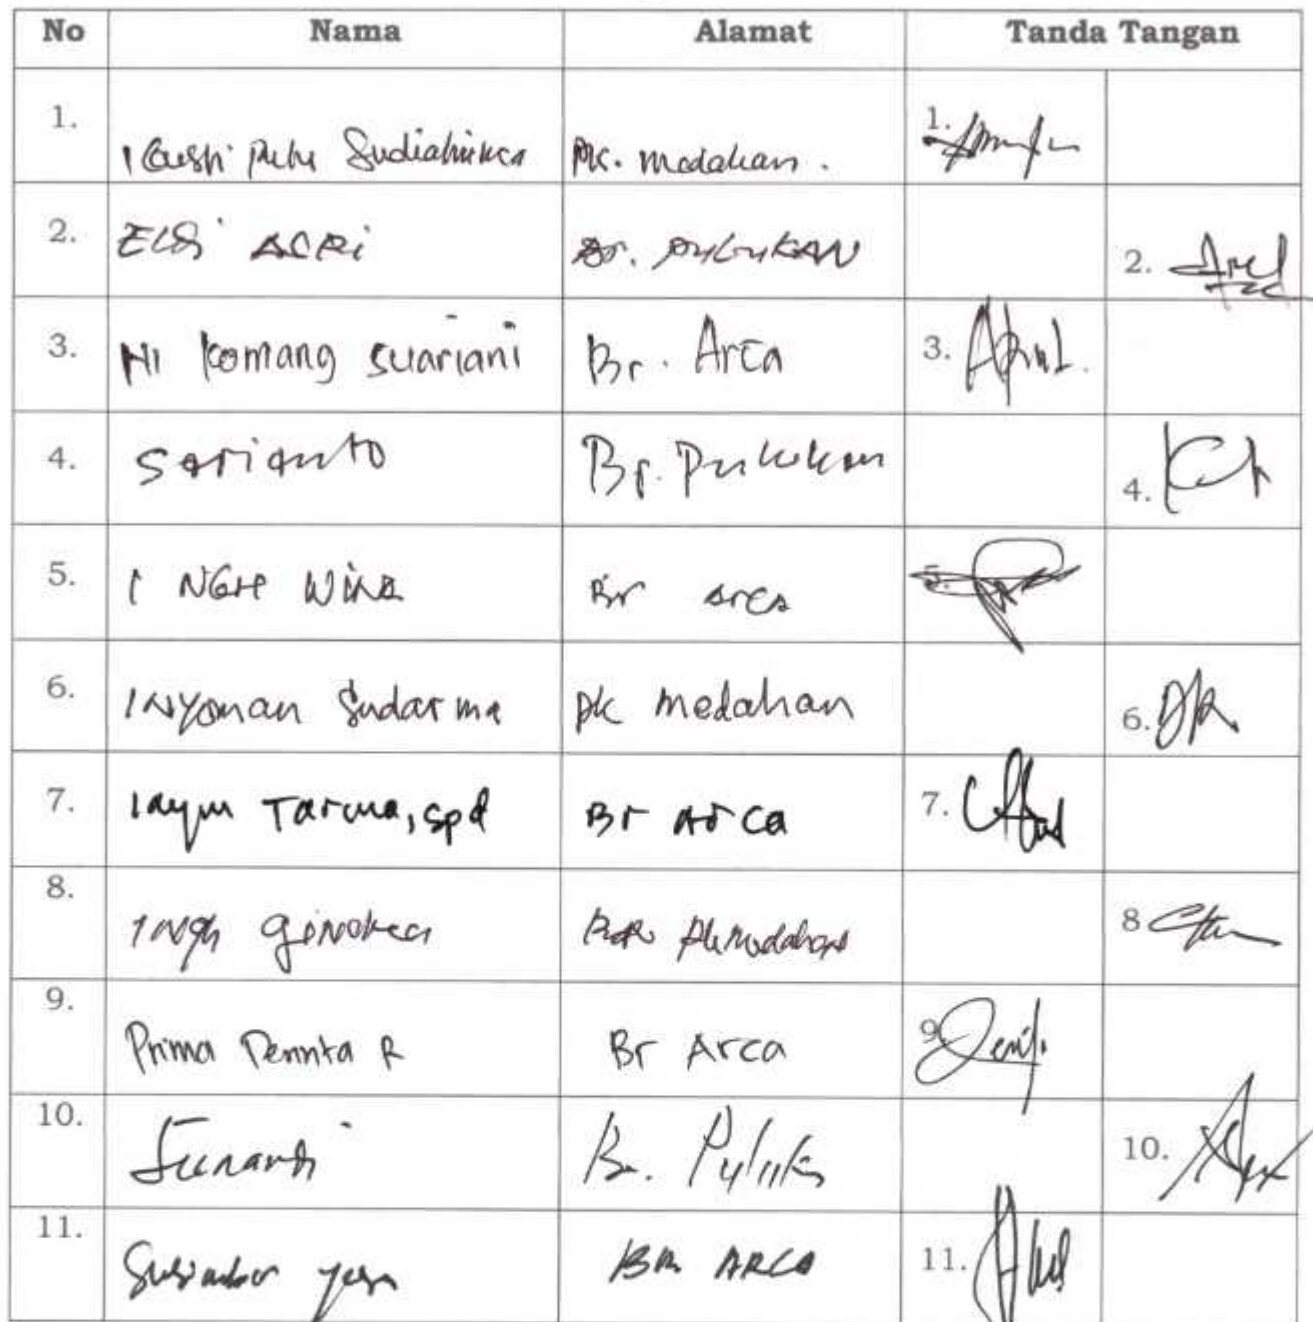 No Nama Alamat Tanda Tangan
1. I Gusti Putu Dk. medahan. 1.
2. ELSI ASRI Br. PULUKAN 2.
3. NI Komang suariani Br. Arca 3.
4. Sarianto Br. Pulukan 4.
5. I NGH WIRA Br arca 5.
6. I NYOMAN Sudarma Dk medahan 6.
7. Tarma, spd Br Arca 7.
8. I Ngh Dk medahan 8
9. Prima Permita R Br Arca 9
10. Br. 10.
11. BR ARCA 11.